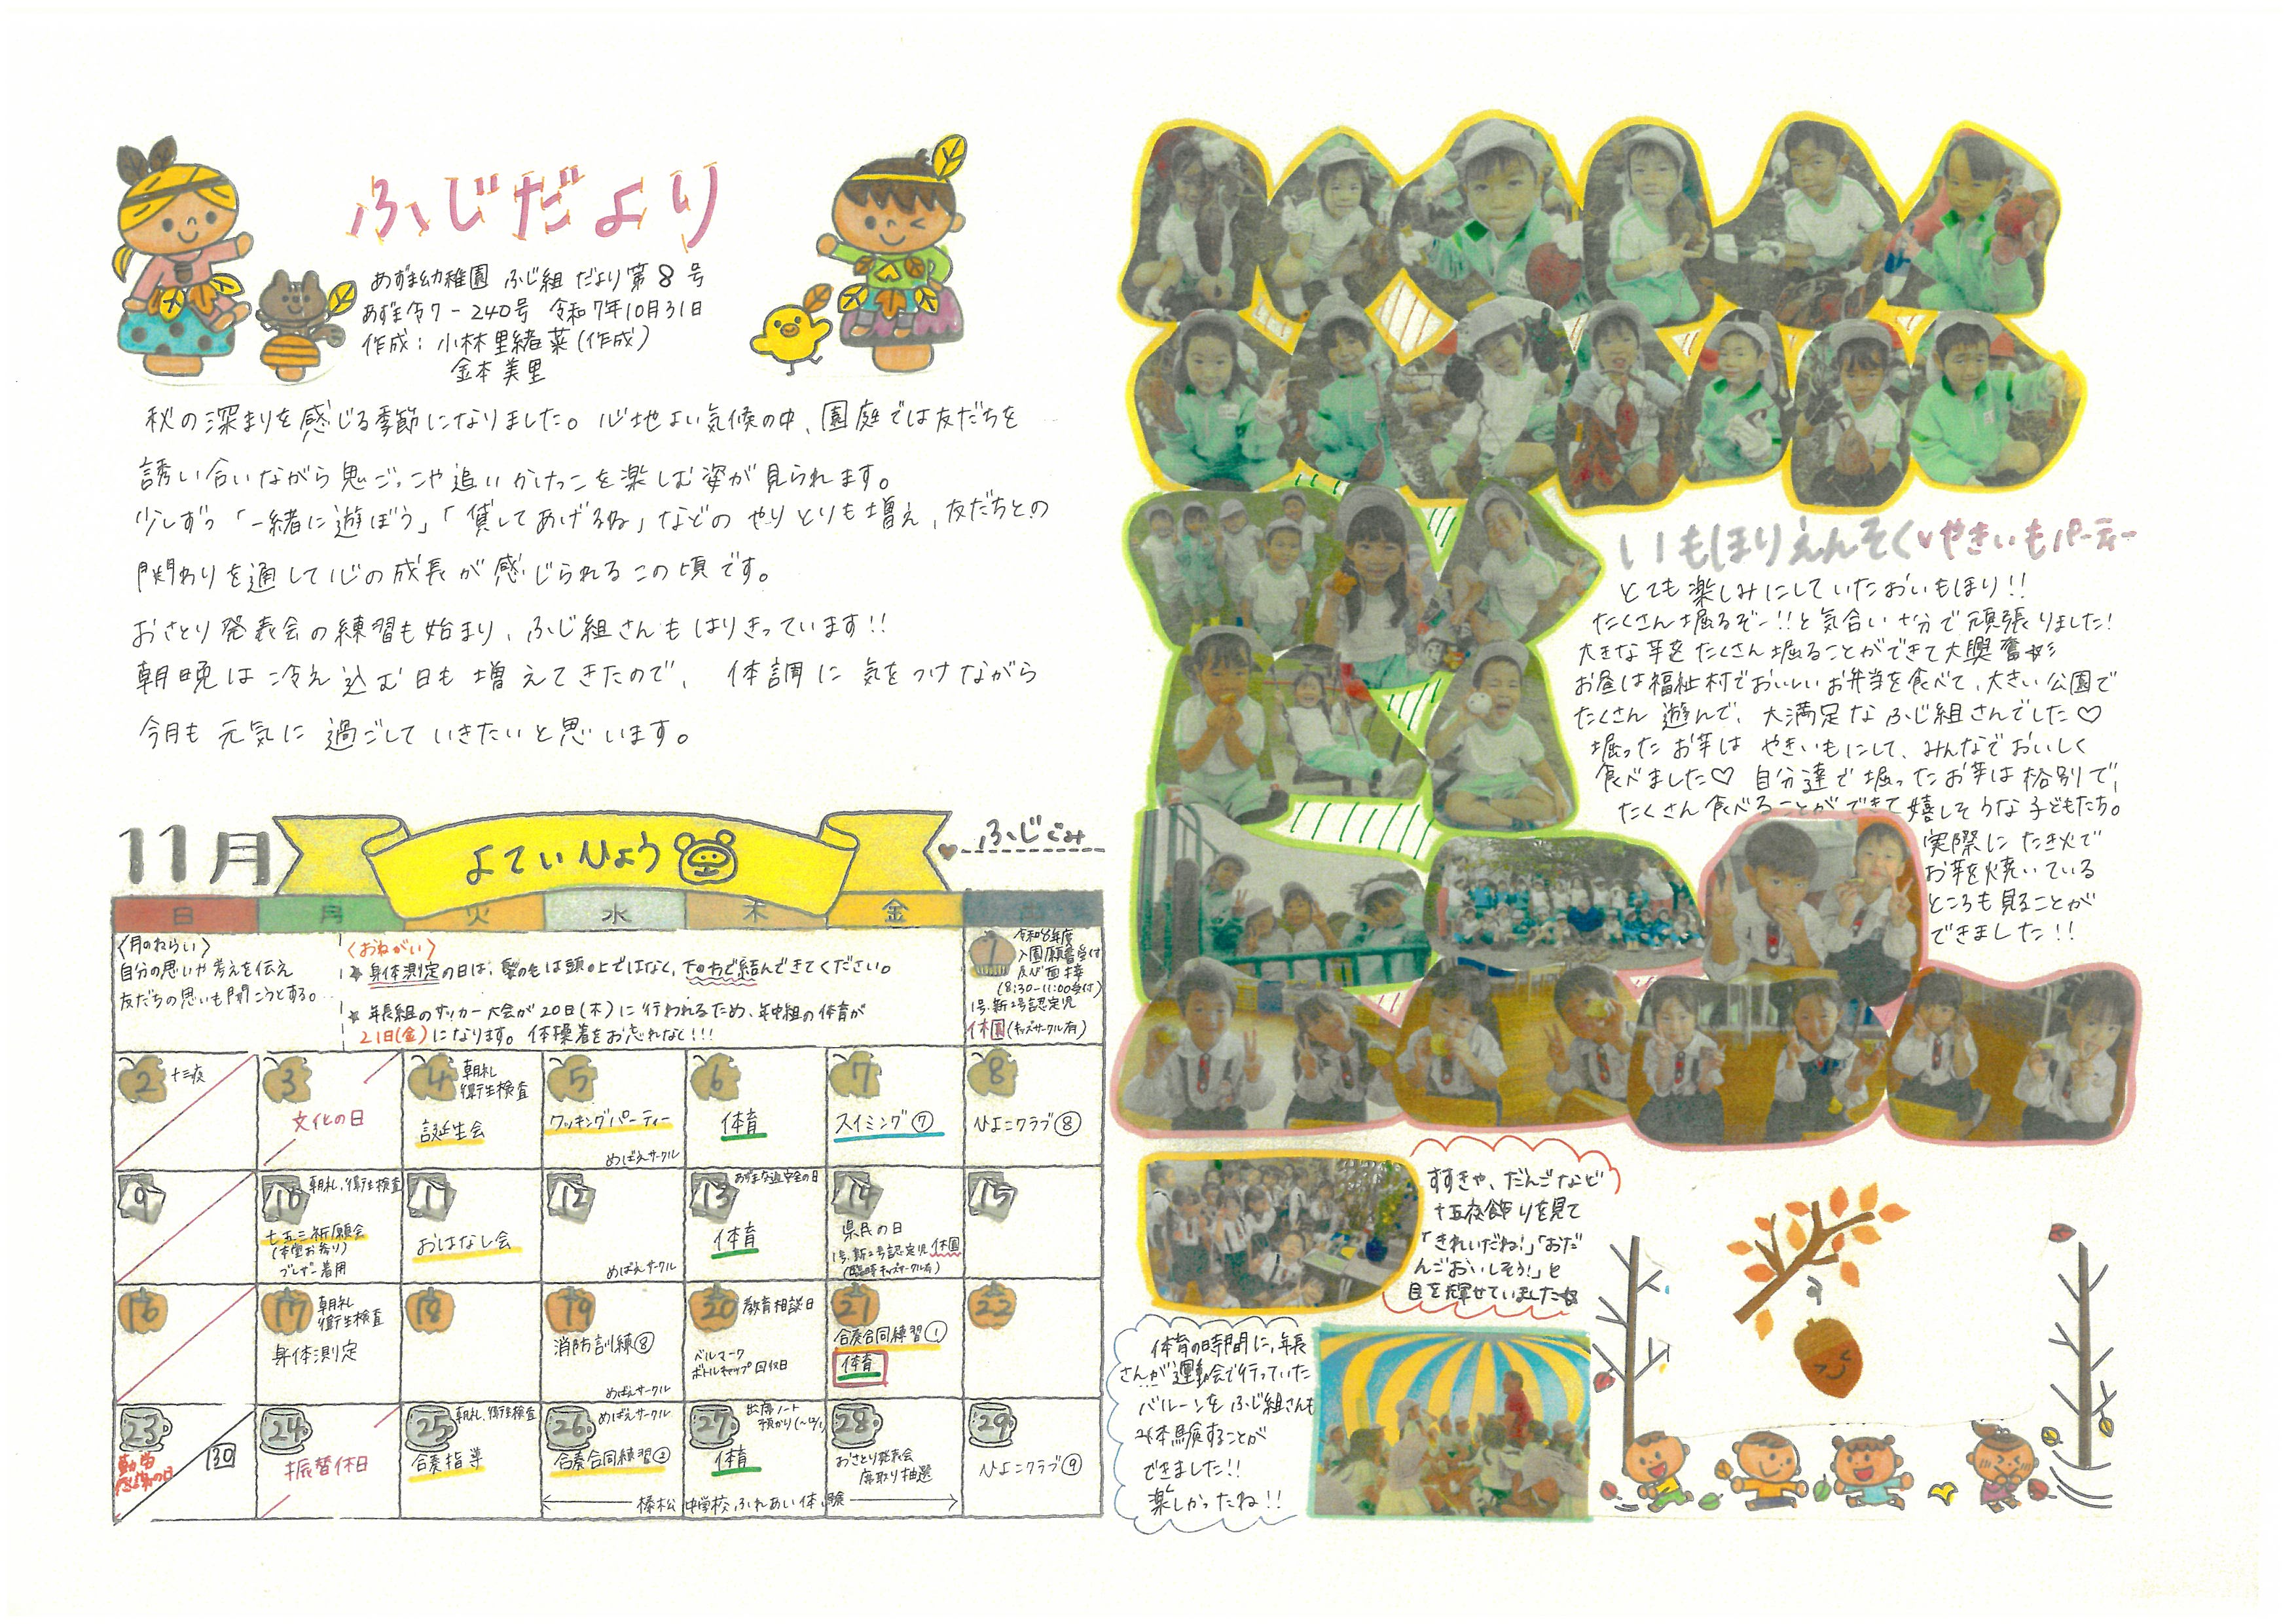 ふじだより
あずま幼稚園 ふじ組 だより第8号
あずま令7-240号 令和7年10月31日
作成：小林里緒菜(作成)
金本美里
秋の深まりを感じる季節になりました。心地よい気候の中、園庭では友だちを
誘い合いながら鬼ごっこや追いかけっこを楽しむ姿が見られます。
少しずつ「一緒に遊ぼう」「貸してあげるね」などのやりとりも増え、友だちとの
関わりを通して心の成長が感じられるこの頃です。
おさとり発表会の練習も始まり、ふじ組さんもはりきっています!!
朝晩は冷え込む日も増えてきたので、体調に気をつけながら
今月も元気に過ごしていきたいと思います。
11月
よていひょう
ふじぐみ
日 月 火 水 木 金 土
〈月のねらい〉
自分の思いや考えを伝え
友だちの思いも聞こうとする。
〈おねがい〉
★身体測定の日は、髪の毛は頭の上ではなく、下の方で結んできてください。
★年長組のサッカー大会が20日(木)に行われるため、年中組の体育が
21日(金)になります。体操着をお忘れなく!!!
1 令和8年度
入園願書受付
及び面接
(8:30~11:00受付)
1号、新2号認定児
休園(キッズサークル有)
2 十三夜
3
文化の日
4 朝礼
衛生検査
誕生会
5
クッキングパーティー
めばえサークル
6
体育
7
スイミング⑦
8
ひよこクラブ⑧
9
10 朝礼、衛生検査
七五三祈願会
(本堂お参り)
ブレザー着用
11
おはなし会
12
めばえサークル
13 あずま交通安全の日
体育
14
県民の日
1号、新2号認定児休園
(臨時キッズサークル有)
15
16
17 朝礼
衛生検査
身体測定
18
19
消防訓練⑧
めばえサークル
20 教育相談日
ベルマーク
ボトルキャップ回収日
21
合奏合同練習①
体育
22
23
勤労
感謝の日
30
24
振替休日
25 朝礼、衛生検査
合奏指導
26 めばえサークル
合奏合同練習②
27 出席ノート
体育
28
おさとり発表会
席取り抽選
29
ひよこクラブ⑨
榛松中学校ふれあい体験
いもほりえんそく♥やきいもパーティー
とても楽しみにしていたおいもほり!!
たくさん掘るぞー!!と気合い十分で頑張りました!
大きな芋をたくさん掘ることができて大興奮☆
お昼は福祉村でおいしいお弁当を食べて、大きい公園で
たくさん遊んで、大満足なふじ組さんでした♡
掘ったお芋はやきいもにして、みんなでおいしく
食べました♡ 自分達で掘ったお芋は格別で、
たくさん食べることができて嬉しそうな子どもたち。
実際にたき火で
お芋を焼いている
ところも見ることが
できました!!
すすきや、だんごなど
十五夜飾りを見て
「きれいだね!」「おだ
んごおいしそう!」と
目を輝せていました☆
体育の時間に、年長
さんが運動会で行っていた
バルーンをふじ組さんも
体験することが
できました!!
楽しかったね!!